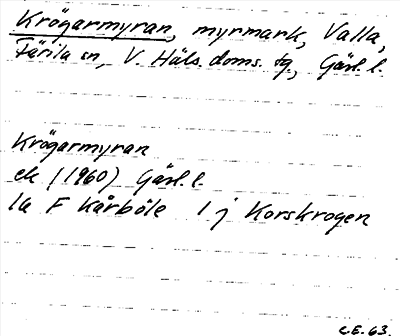 Krögarmyran, myrmark, Valla,
Färila sn, V. Häls. doms. tg, Gävl. l.
Krögarmyran
ek (1960) Gävl. l.
la F Kårböle 1 j Korskrogen
C.E. 63.